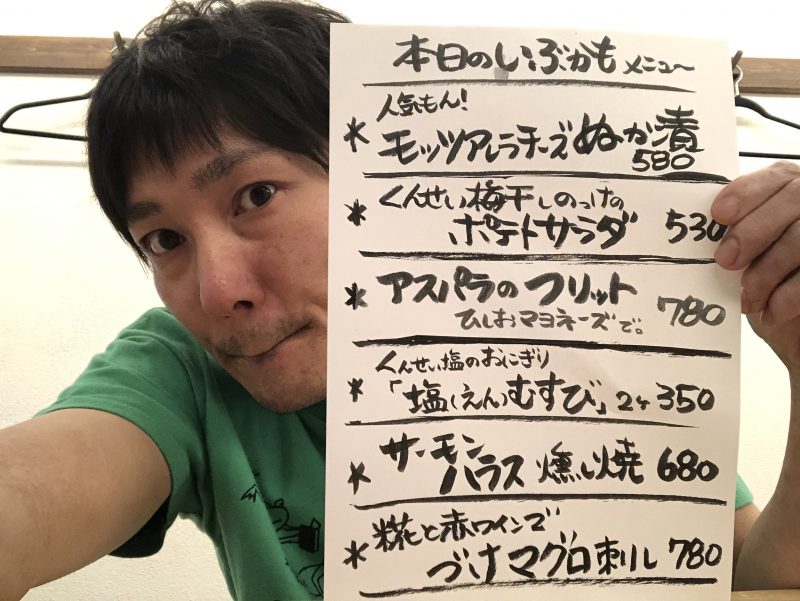 本日のいぶかもメニュー
人気もん!
* モッツアレラチーズぬか漬
580
* くんせい梅干しのっけの
ポテトサラダ 530
* アスパラのフリット
ひしおマヨネーズで。 780
くんせい塩のおにぎり
* 「塩(えん)むすび」2ケ 350
* サーモン
ハラス 燻し焼 680
* 糀と赤ワインで
づけマグロ刺し 780